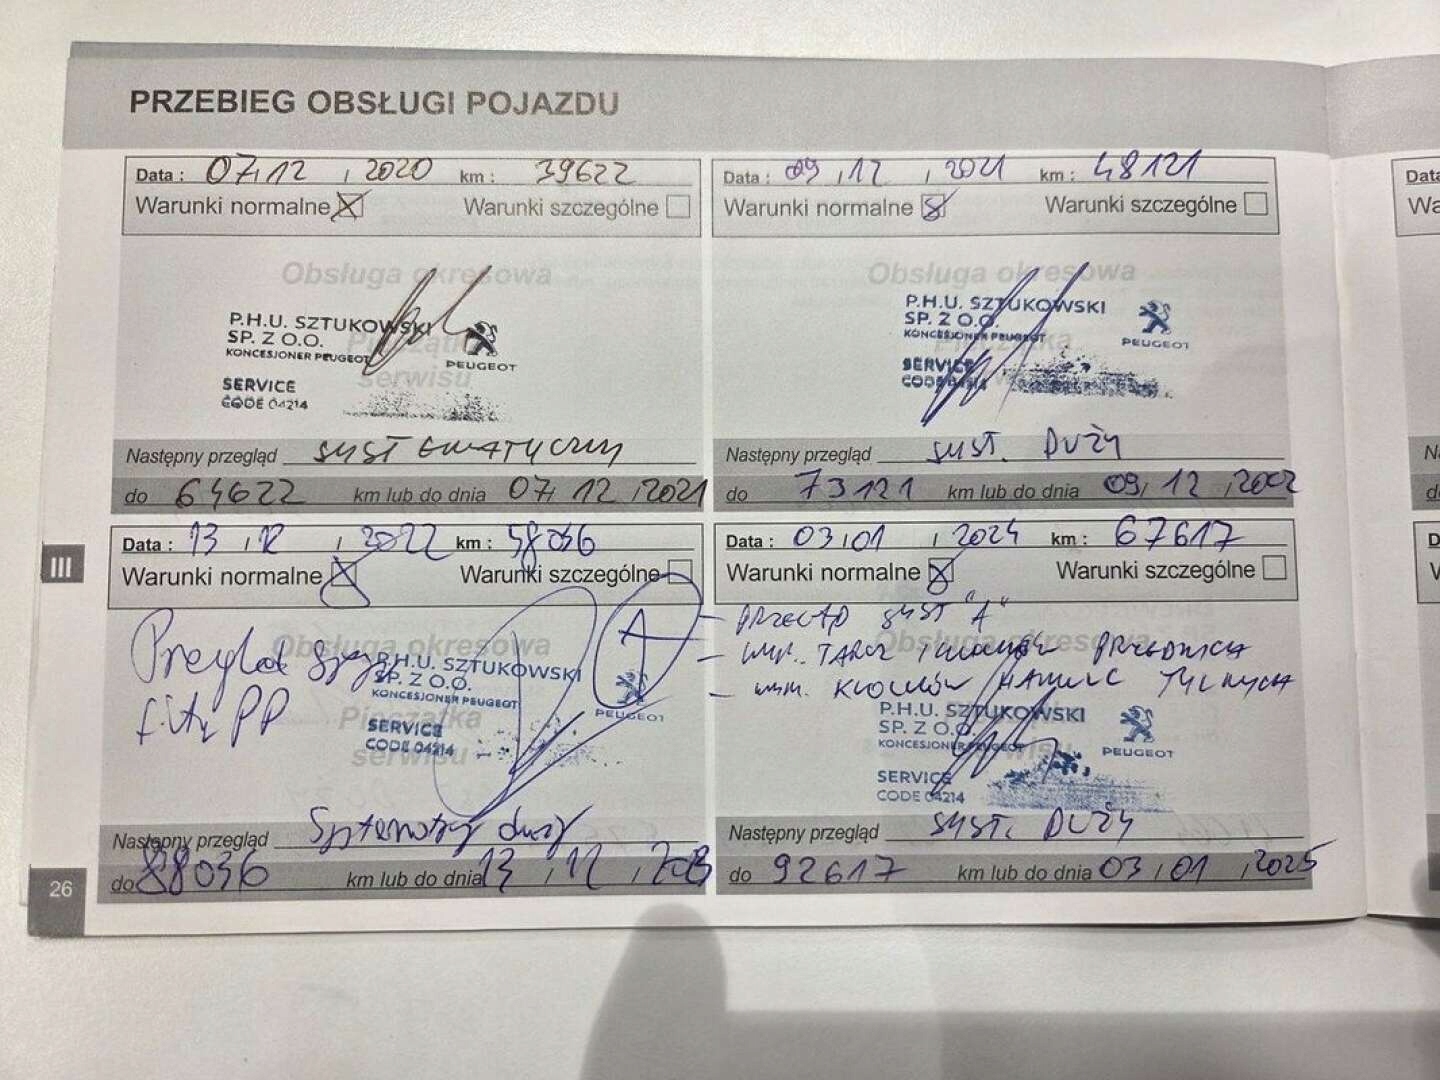 PRZEBIEG OBSŁUGI POJAZDU
Data : 07,12 , 2020 km : 39622
Warunki normalne Warunki szczególne
Obsługa okresowa
P.H.U. SZTUKOWSKI
SP. Z O.O.
KONCESJONER PEUGEOT
PEUGEOT
Pieczątka
serwisu
SERVICE
CODE 04214
Następny przegląd SYSTEMATYCZNY
do 64622 km lub do dnia 07, 12 , 2021
Data : 09 , 12 , 2021 km : 48121
Warunki normalne Warunki szczególne
Obsługa okresowa
P.H.U. SZTUKOWSKI
SP. Z O.O.
KONCESJONER PEUGEOT
PEUGEOT
SERVICE
CODE 04214
Następny przegląd SYST. DUŻY
do 73121 km lub do dnia 09, 12 , 2002
III
Data : 13 , 12 , 2022 km : 58036
Warunki normalne Warunki szczególne
A
Obsługa okresowa
P.H.U. SZTUKOWSKI
SP. Z O.O.
KONCESJONER PEUGEOT
PEUGEOT
PP
Pieczątka
serwisu
SERVICE
CODE 04214
Następny przegląd
do 88036 km lub do dnia 13 , 12 , 2023
Data : 03,01 , 2024 km : 67617
Warunki normalne Warunki szczególne
- PRZEGLĄD SYST "A"
- WYM. TARCZ I KLOCKÓW PRZEDNICH
- WYM. KLOCKÓW HAMULC TYLNYCH
Obsługa okresowa
P.H.U. SZTUKOWSKI
SP. Z O.O.
KONCESJONER PEUGEOT
PEUGEOT
serwisu
SERVICE
CODE 04214
Następny przegląd SYST. DUŻY
do 92617 km lub do dnia 03 , 01 , 2025
26